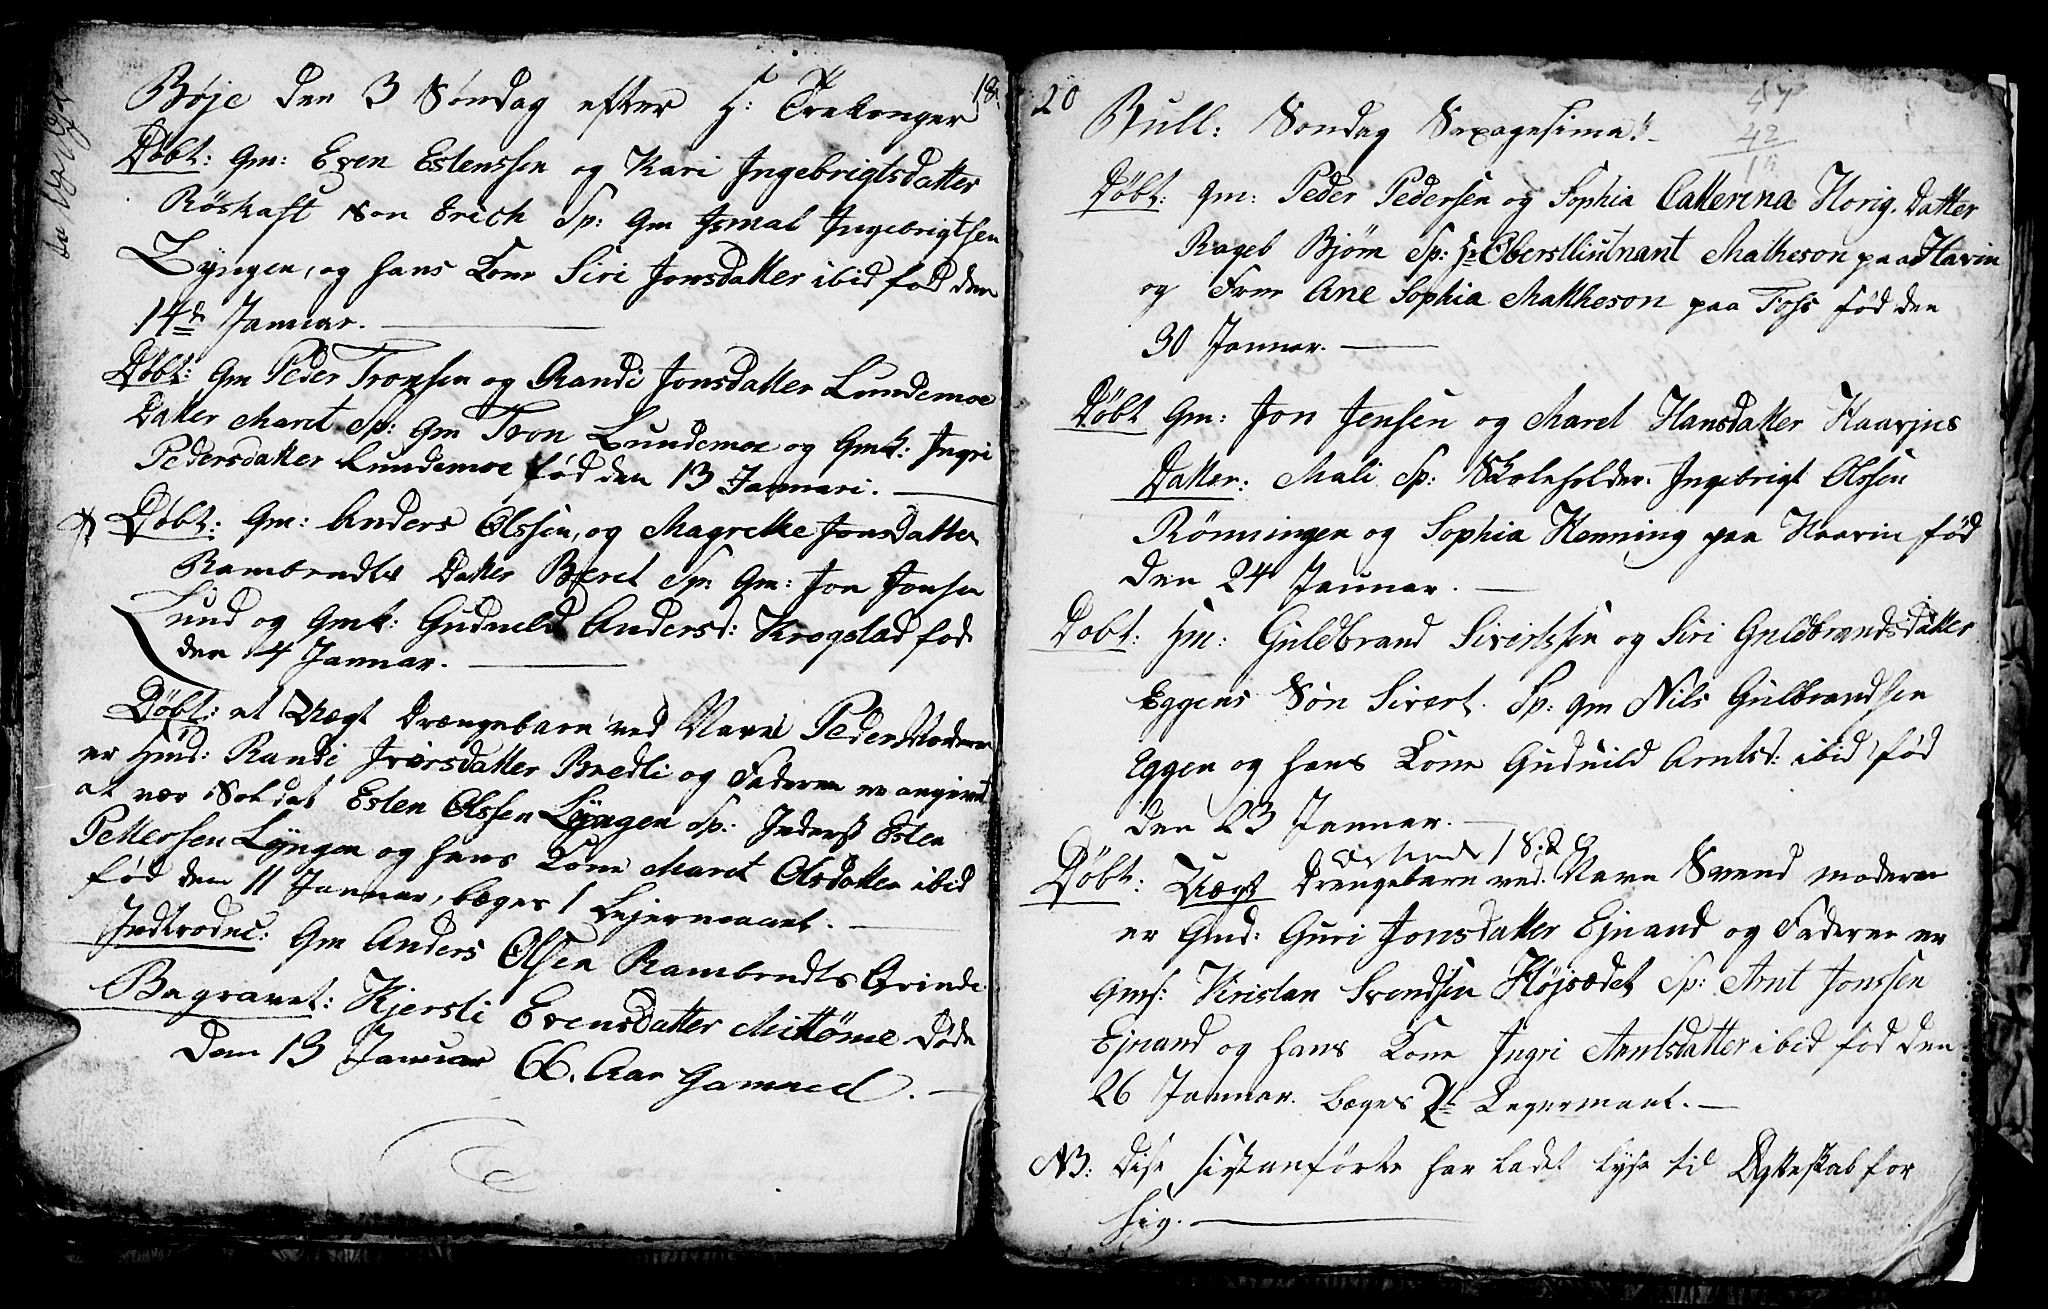 Böje den 3 Söndag efter H: Trekonger 18
Döbt: Gm: Even Estenssen og Kari Ingebrigtsdatter
Röskaft Son Erich Sp: Gm Ismal Ingebrigtsen
Lyngen, og hans Kone Siri Jonsdatter ibid fød den
14de Januar.
Döbt: Gm Peder Tronsen og Randi Jonsdatter Lundemoe
Datter Maret Sp: Gm Tron Lundemoe og Gmk: Ingri
Pedersdatter Lundemoe fød den 13 Januari.
Döbt: Gm: Anders Olssen, og Magrette Jonsdatter
Rambrndts Datter Beret Sp: Gm: Jon Jonsen
Lund og Gmk: Gudneld Andersd: Krogstad fød
den 4 Januar.
Döbt: et Uægt Drængebarn ved Navn Peder Moderen
er Pmd: Randi Iversdatter Bredli og Faderen er angivet
at vær Soldat Esten Olssen Lyngen Sp: Inderst Esten
Pettersen Lyngen og hans Kone Maret Olsdatter ibid
fød den 11 Januar, begges 1 Lejermaael.
Indtroduc: Gm Anders Olsen Rambrndts Qvinde
Begravet: Kjersti Evensdatter Mittöme Døde
Den 13 Januar 66. Aar Gammel.
20 Bull: Sondag Saxagesima
57
42
Döbt: Gm: Peder Pedersen og Sophia Catterina Horig. Datter
Rageb Bjøm Sp: Hr Oberstliutnant Matheson paa Havin
og Frue Ane Sophia Mattheson paa Foss fød den
30 Januar.
Döbt Gm: Jon Jensen og Maret Hansdatter Haavins
Datter: Mali Sp: Skoleholder Ingebrigt Olssen
Rönningen og Sophia Henning paa Haavin fød
den 24 Januar.
Dobt: Hm: Guldbrand Sivertssen og Siri Guldbrandsdatter
Eggens Søn Sivert. Sp: Gm Nils Gulbrandsen
Eggen og hans Kone Guduild Arntsd: ibid fød
den 23 Januar.
1829
Döbt: Uægt Drengebarn ved Navn Svend moderen
er Gmd: Guri Jonsdatter Ejnand og Faderen er
Gms: Kristan Svendsen Højsædet Sp: Arnt Jonssen
Ejnand og hans Kone Ingri Arntsdatter ibid fød den
26 Januar. begges 2det Legermaal.
NB: Disse sistanførte har ladet lyse til Ægteskab for
sig.